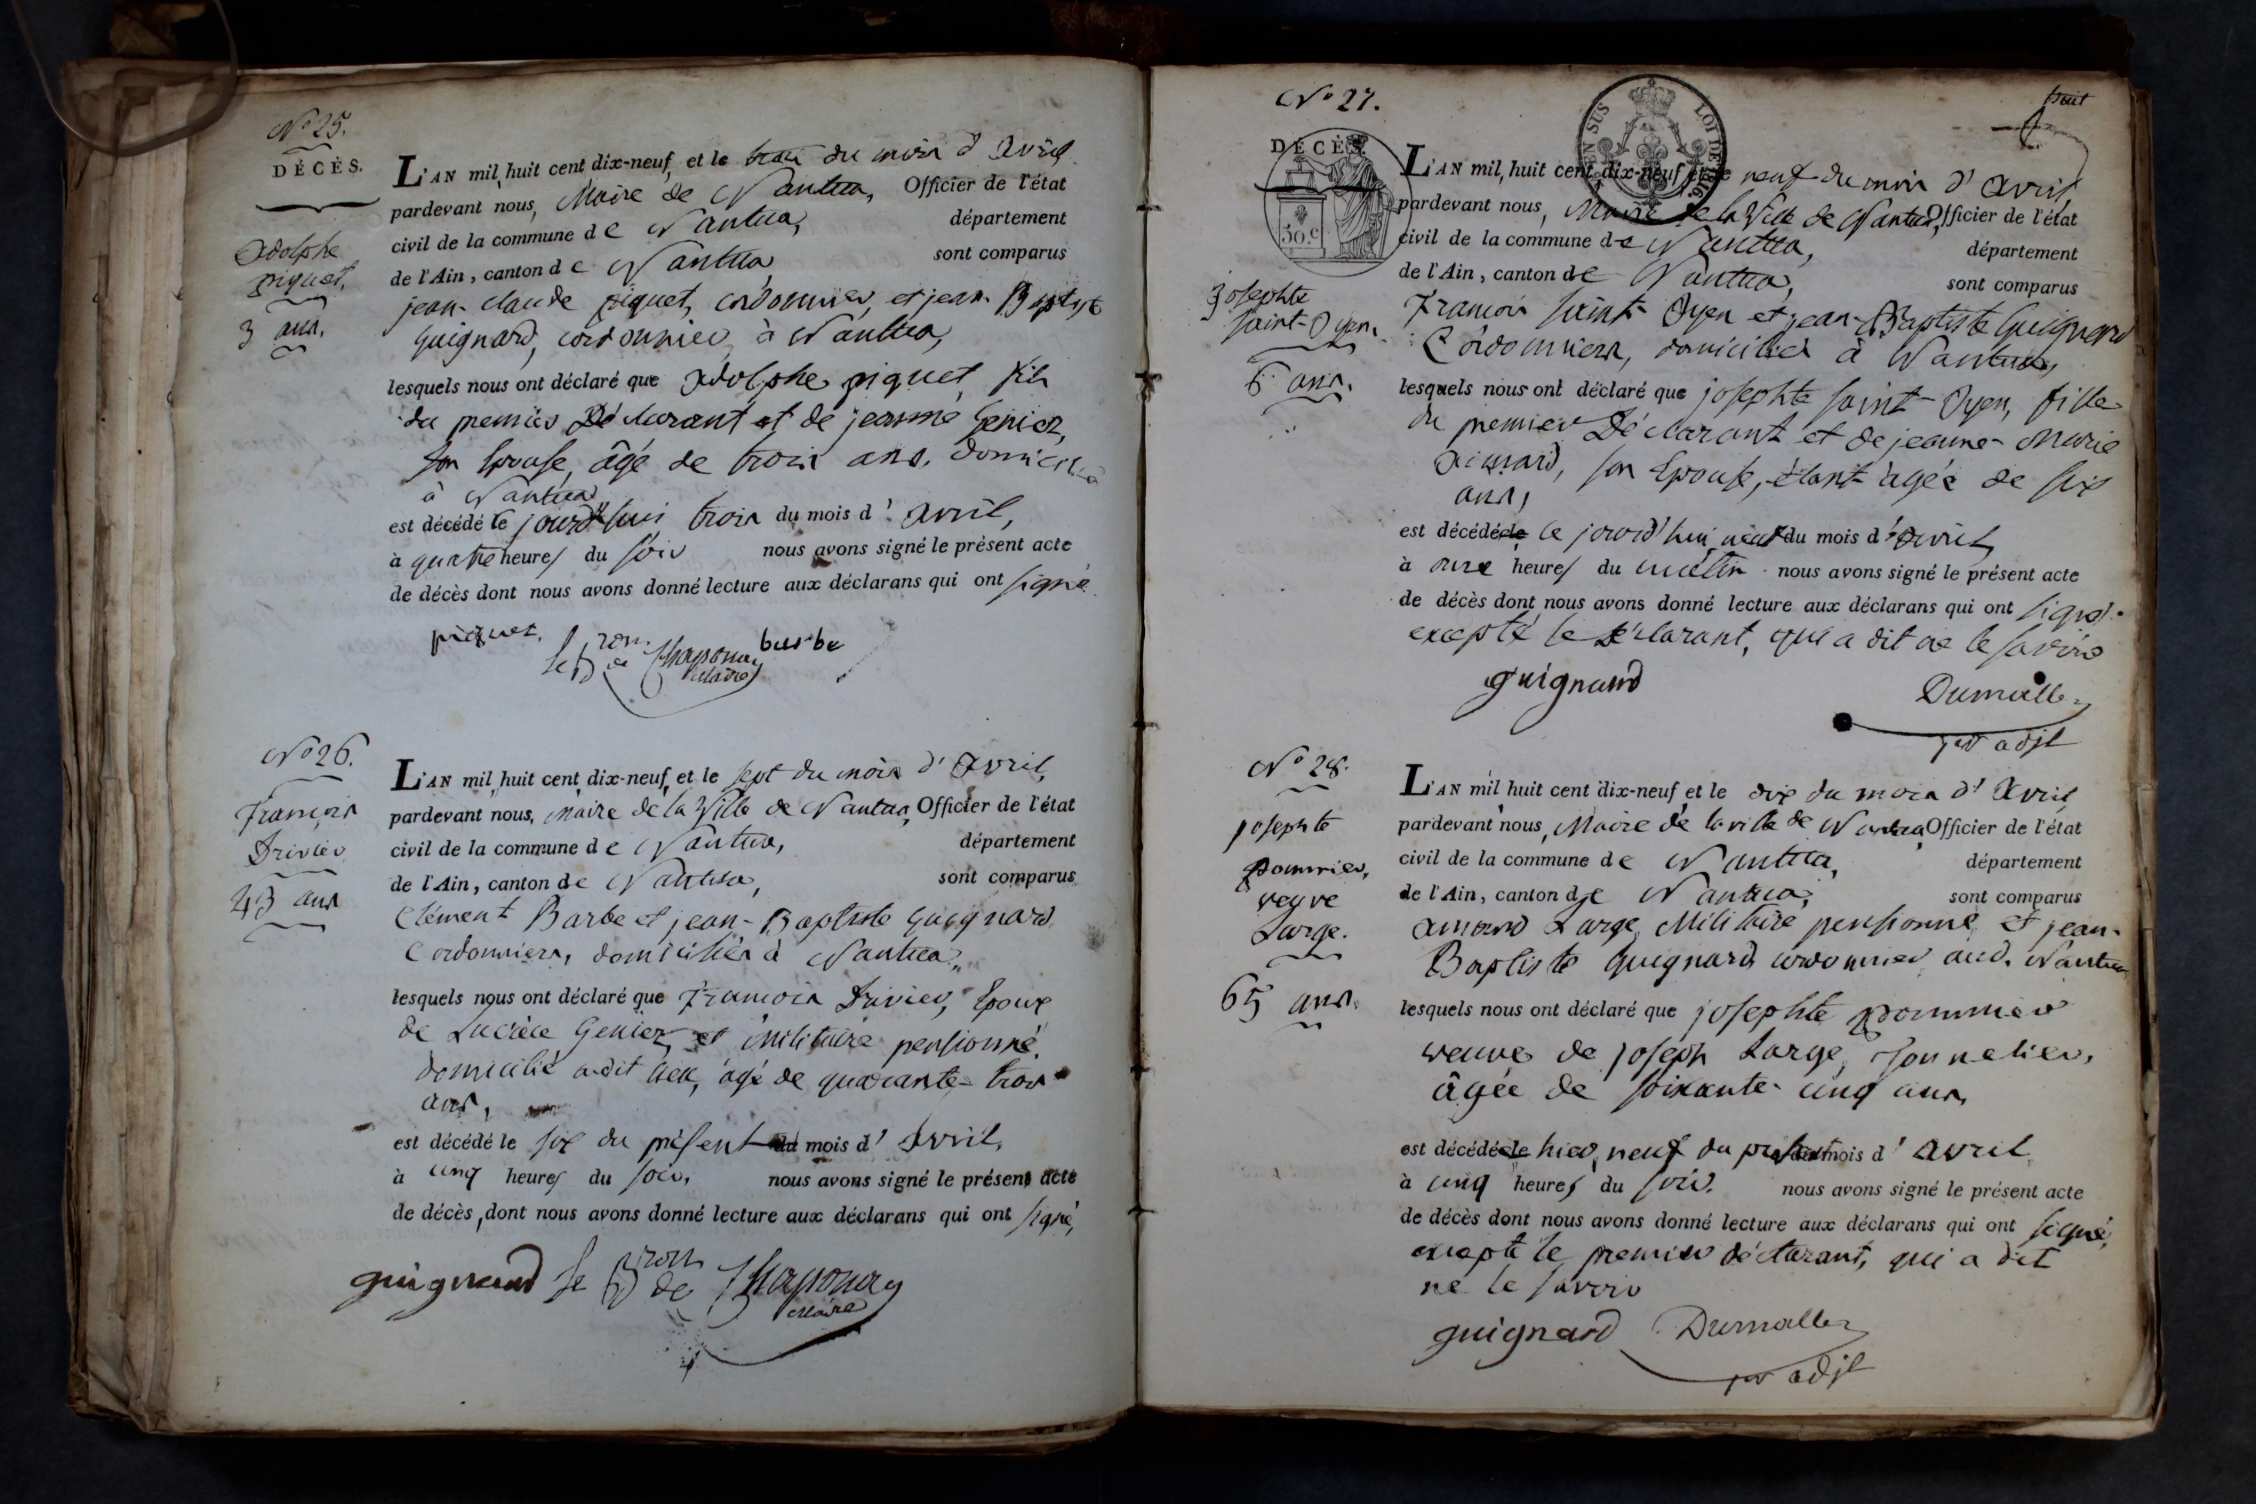 N° 25.
DÉCÈS.
L'AN mil huit cent dix-neuf, et le trois du mois d'Avril
pardevant nous, Maire de Nantua, Officier de l'état
civil de la commune de Nantua, département
de l'Ain, canton de Nantua, sont comparus
Adolphe
piquet.
3 ans.
jean-claude piquet, cordonnier, et jean-Baptiste
guignard, cordonnier, à Nantua,
lesquels nous ont déclaré que Adolphe piquet, fils
du premier Déclarant et de jeanne Geniez,
son Epouse, âgé de trois ans, domicilié
à Nantua
est décédé le jourd'hui trois du mois d'Avril,
à quatre heures du soir nous avons signé le présent acte
de décès dont nous avons donné lecture aux déclarans qui ont signé
piquet. barbe
le Bron de Thaponay
Maire
N° 26.
L'AN mil huit cent dix-neuf, et le sept du mois d'Avril
pardevant nous, Maire de la Ville de Nantua, Officier de l'état
civil de la commune de Nantua, département
de l'Ain, canton de Nantua, sont comparus
François
Drivier
43 ans
Clément Barbe et jean-Baptiste guignard
Cordonniers, domiciliés à Nantua,
lesquels nous ont déclaré que François Drivier, Epoux
de Lucrèce Geniez, et militaire pensionné,
domicilié audit lieu, âgé de quarante-trois
ans,
est décédé le six du présent du mois d'Avril,
à cinq heures du soir, nous avons signé le présent acte
de décès, dont nous avons donné lecture aux déclarans qui ont signé,
guignard le Bron de Thaponay
Maire
N° 27.
huit
TIMBRE EN SUS LOI DE 1816
DÉCÈS.
50.c
L'AN mil, huit cent dix-neuf et le neuf du mois d'Avril,
pardevant nous, Maire de la Ville de Nantua, Officier de l'état
civil de la commune de Nantua, département
de l'Ain, canton de Nantua, sont comparus
Josephte
Saint-Oyen.
6 ans.
François Saint-Oyen et jean-Baptiste Guignard
Cordonniers, domiciliés à Nantua,
lesquels nous ont déclaré que josephte Saint-Oyen, fille
du premier Déclarant et de jeanne-Marie
son Epouse, étant âgée de six
ans,
est décédée le ce jourd'hui neuf du mois d'Avril,
à onze heures du matin nous avons signé le présent acte
de décès dont nous avons donné lecture aux déclarans qui ont signé.
excepté le Déclarant, qui a dit ne le savoir
guignard Dumollez
1er adjt
N° 28.
L'AN mil huit cent dix-neuf et le dix du mois d'Avril
pardevant nous, Maire de la ville de Nantua Officier de l'état
civil de la commune de Nantua, département
de l'Ain, canton de Nantua, sont comparus
josephte
pommier,
veuve
Large.
65 ans.
amand Large, Militaire pensionné, et jean-
Baptiste Guignard cordonnier aud. Nantua
lesquels nous ont déclaré que josephte pommier
veuve de joseph Large, Tonnelier,
âgée de soixante-cinq ans,
est décédée le hier, neuf du présent du mois d'Avril
à cinq heures du soir. nous avons signé le présent acte
de décès dont nous avons donné lecture aux déclarans qui ont signé,
excepté le premier déclarant, qui a dit
ne le savoir
guignard Dumollez
1er adjt